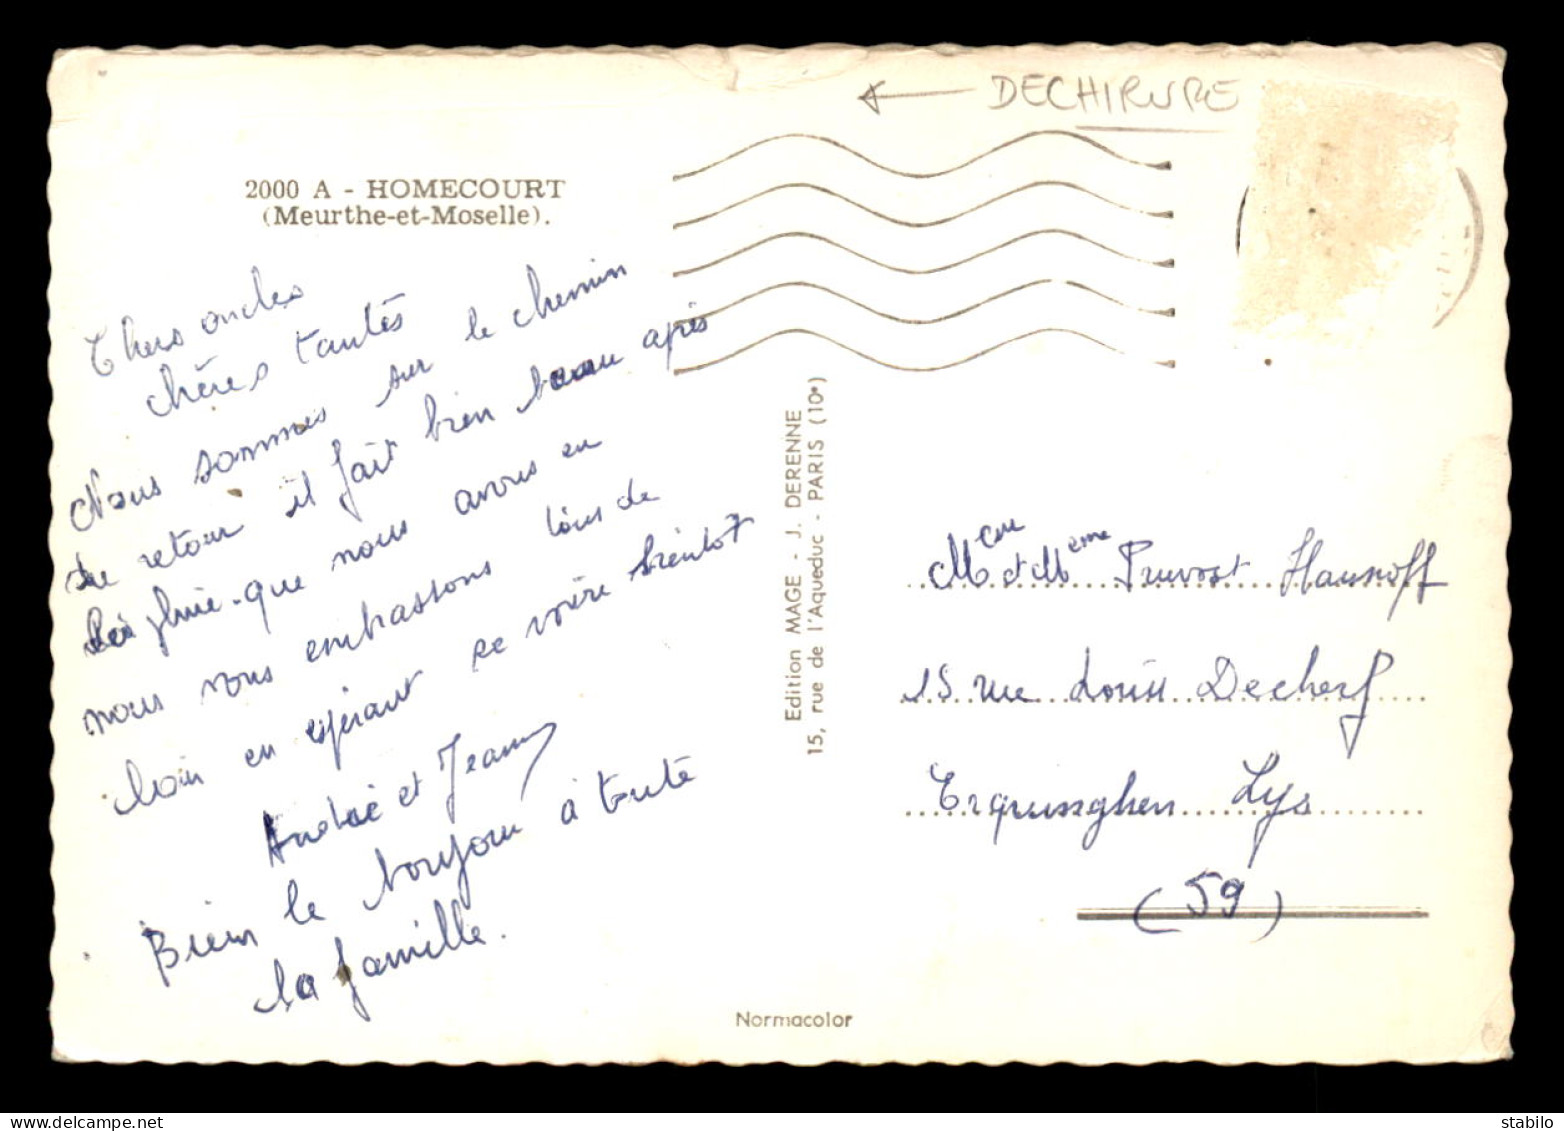 ← DECHIRURE
2000 A - HOMECOURT
(Meurthe-et-Moselle).
Chers oncles
chères tantes
Nous sommes sur le chemin
du retour il fait bien beau après
les pluie que nous avons eu
nous vous embrassons tous de
loin en espérant se voire bientot
André et Jeanny
Bien le bonjour à toute
la famille.
Edition MAGE - J. DERENNE
15, rue de l'Aqueduc - PARIS (10e)
Mr et Meme Pruvost
15 rue Louis Decherf
Erquinghen Lys
(59)
Normacolor
delcampe.net
stabilo